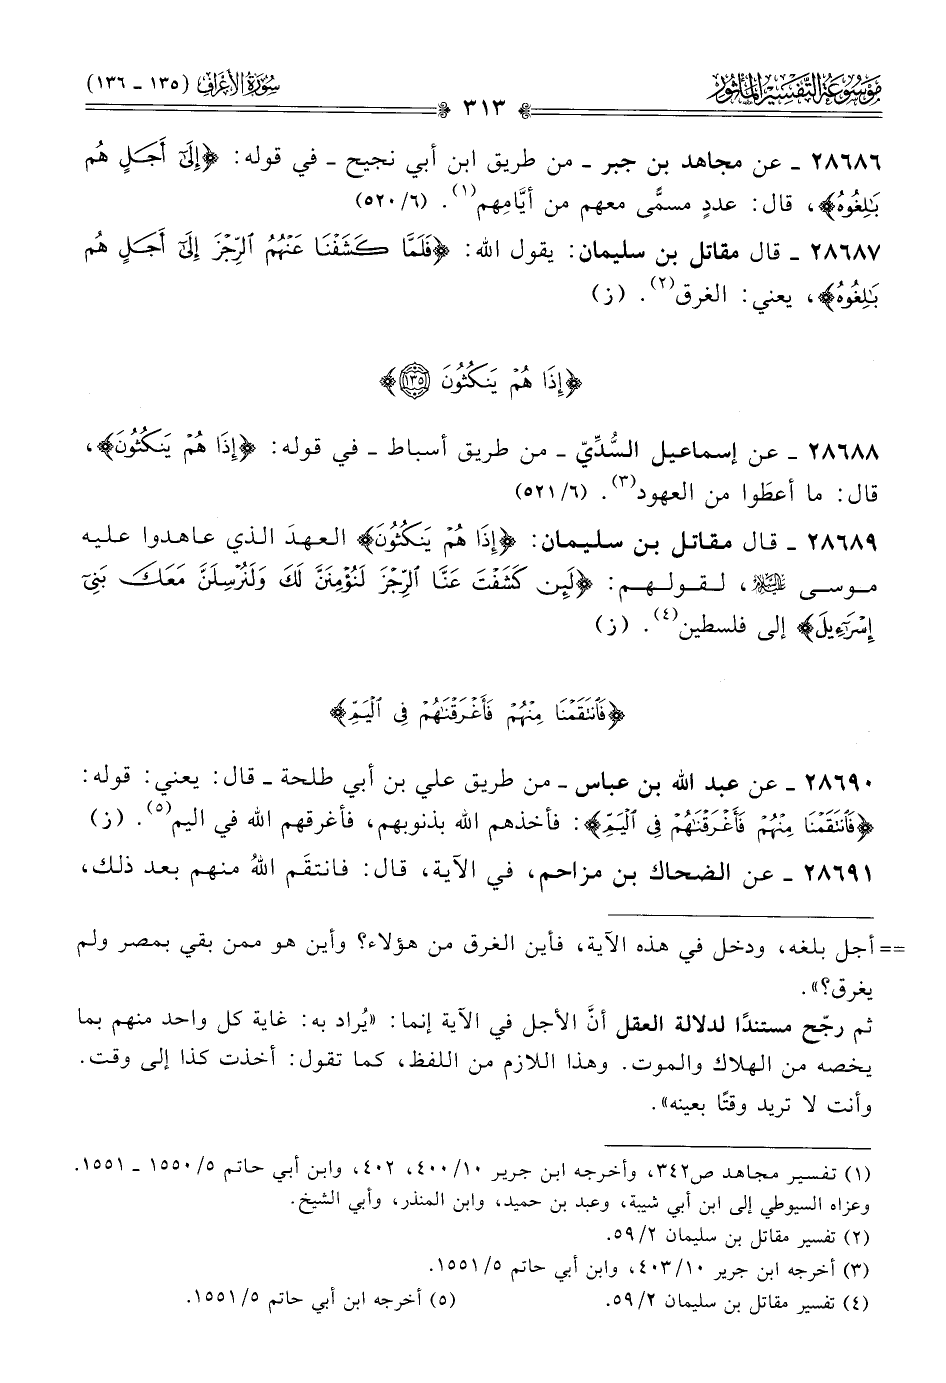 موسوعة التفسير المأثور
سورة الأعراف (١٣٥ ـ ١٣٦)
٣١٣
٢٨٦٨٦ ـ عن مجاهد بن جبر ـ من طريق ابن أبي نجيح ـ في قوله: ﴿إِلَىٰٓ أَجَلٍ هُم
بَـٰلِغُوهُ﴾، قال: عددٍ مسمًّى معهم من أيَّامِهم(١). (٦/ ٥٢٠)
٢٨٦٨٧ ـ قال مقاتل بن سليمان: يقول الله: ﴿فَلَمَّا كَشَفْنَا عَنْهُمُ ٱلرِّجْزَ إِلَىٰٓ أَجَلٍ هُم
بَـٰلِغُوهُ﴾، يعني: الغرق(٢). (ز)
﴿إِذَا هُمْ يَنكُثُونَ ١٣٥﴾
٢٨٦٨٨ ـ عن إسماعيل السُّدِّيّ ـ من طريق أسباط ـ في قوله: ﴿إِذَا هُمْ يَنكُثُونَ﴾،
قال: ما أعطَوا من العهود(٣). (٦/ ٥٢١)
٢٨٦٨٩ ـ قال مقاتل بن سليمان: ﴿إِذَا هُمْ يَنكُثُونَ﴾ العهدَ الذي عاهدوا عليه
موسى عليه السلام، لقولهم: ﴿لَئِن كَشَفْتَ عَنَّا ٱلرِّجْزَ لَنُؤْمِنَنَّ لَكَ وَلَنُرْسِلَنَّ مَعَكَ بَنِىٓ
إِسْرَٰٓءِيلَ﴾ إلى فلسطين(٤). (ز)
﴿فَٱنتَقَمْنَا مِنْهُمْ فَأَغْرَقْنَـٰهُمْ فِى ٱلْيَمِّ﴾
٢٨٦٩٠ ـ عن عبد الله بن عباس ـ من طريق علي بن أبي طلحة ـ قال: يعني: قوله:
﴿فَٱنتَقَمْنَا مِنْهُمْ فَأَغْرَقْنَـٰهُمْ فِى ٱلْيَمِّ﴾: فأخذهم الله بذنوبهم، فأغرقهم الله في اليم(٥). (ز)
٢٨٦٩١ ـ عن الضحاك بن مزاحم، في الآية، قال: فانتقَم اللهُ منهم بعد ذلك،
== أجل بلغه، ودخل في هذه الآية، فأين الغرق من هؤلاء؟ وأين هو ممن بقي بمصر ولم
يغرق؟».
ثم رجّح مستندًا لدلالة العقل أنَّ الأجل في الآية إنما: «يُراد به: غاية كل واحد منهم بما
يخصه من الهلاك والموت. وهذا اللازم من اللفظ، كما تقول: أخذت كذا إلى وقت.
وأنت لا تريد وقتًا بعينه».
(١) تفسير مجاهد ص٣٤٢، وأخرجه ابن جرير ١٠/ ٤٠٠، ٤٠٢، وابن أبي حاتم ٥/ ١٥٥٠ ـ ١٥٥١.
وعزاه السيوطي إلى ابن أبي شيبة، وعبد بن حميد، وابن المنذر، وأبي الشيخ.
(٢) تفسير مقاتل بن سليمان ٢/ ٥٩.
(٣) أخرجه ابن جرير ١٠/ ٤٠٣، وابن أبي حاتم ٥/ ١٥٥١.
(٤) تفسير مقاتل بن سليمان ٢/ ٥٩. (٥) أخرجه ابن أبي حاتم ٥/ ١٥٥١.